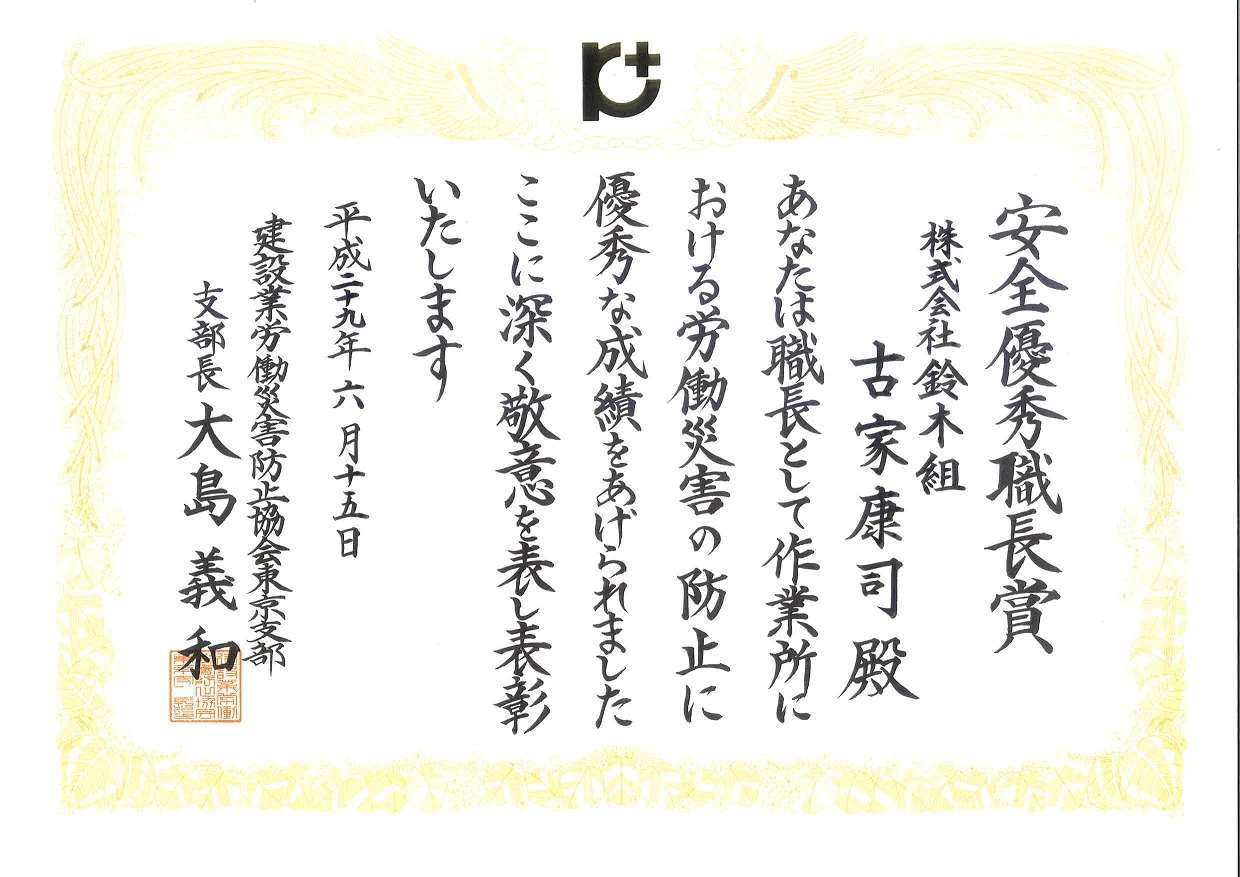 安全優秀職長賞
株式会社鈴木組
古家康司殿
あなたは職長として作業所に
おける労働災害の防止に
優秀な成績をあげられました
ここに深く敬意を表し表彰
いたします
平成二十九年六月十五日
建設業労働災害防止協会東京支部
支部長大島義和